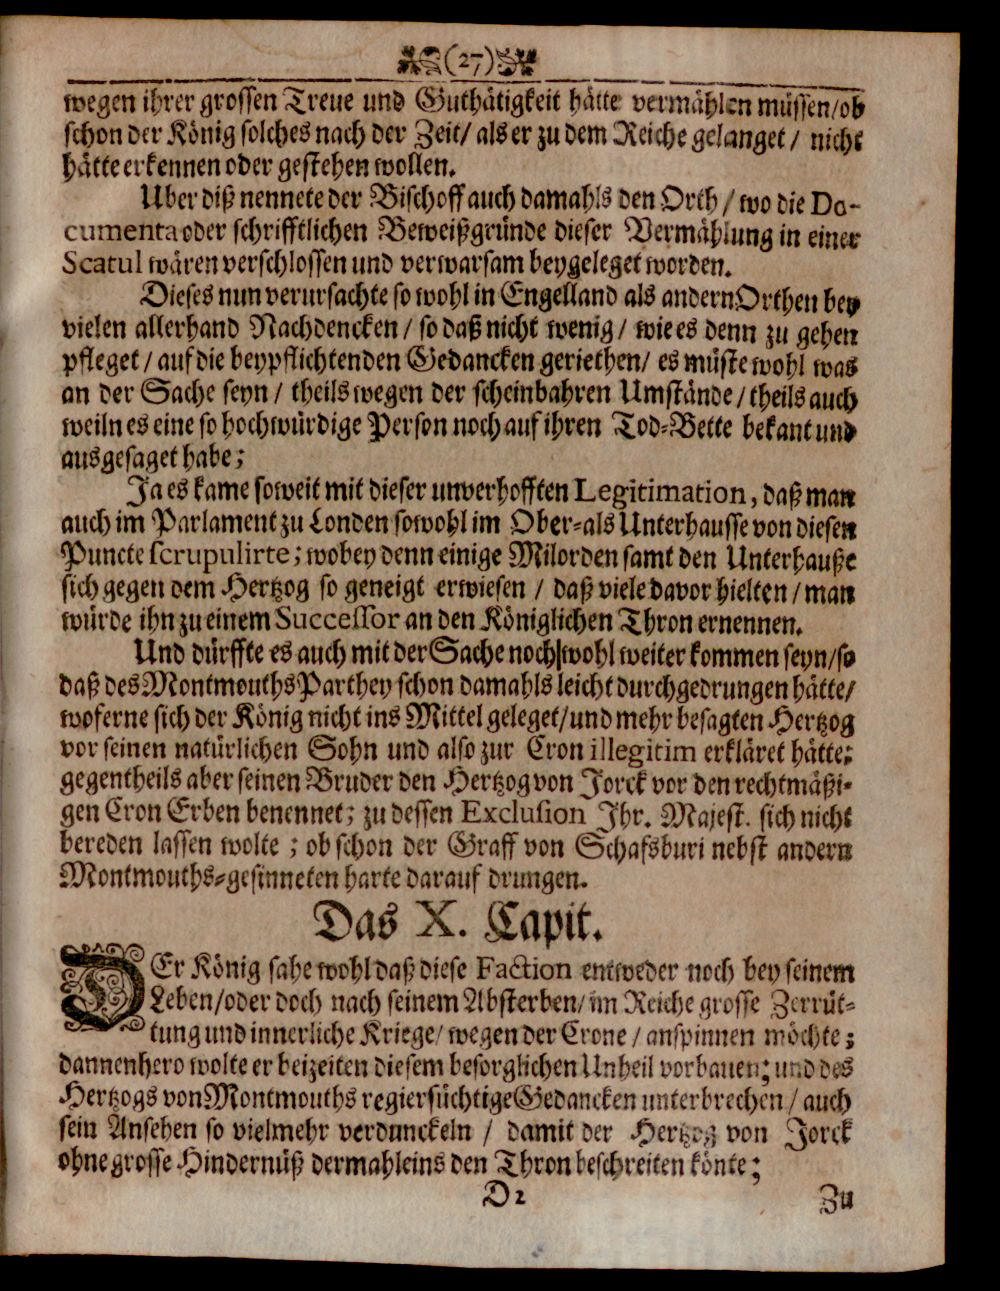 (27)
wegen ihrer grossen Treue und Guthätigkeit hätte vermählen müssen/ob
schon der König solches nach der Zeit/ als er zu dem Reiche gelanget / nicht
hätte erkennen oder gestehen wollen.
Uber diß nennete der Bischoff auch damahls den Orth / wo die Do-
cumenta oder schrifftlichen Beweißgründe dieser Vermählung in einer
Scatul wären verschlossen und verwarsam beygeleget worden.
Dieses nun verursachte so wohl in Engelland als andern Orthen bey
vielen allerhand Nachdencken / so daß nicht wenig / wie es denn zu gehen
pfleget / auf die beypflichtenden Gedancken geriethen/ es müste wohl was
an der Sache seyn / theils wegen der scheinbahren Umstände / theils auch
weiln es eine so hochwürdige Person noch auf ihren Tod-Bette bekant und
ausgesaget habe;
Ja es kame soweit mit dieser unverhofften Legitimation, daß man
auch im Parlament zu Londen sowohl im Ober-als Unterhausse von diesen
Puncte scrupulirte; wobey denn einige Milorden samt den Unterhauße
sich gegen dem Hertzog so geneigt erwiesen / daß viele davor hielten / man
würde ihn zu einem Successor an den Königlichen Thron ernennen.
Und dürffte es auch mit der Sache noch wohl weiter kommen seyn/so
daß des Montmouths Parthey schon damahls leicht durchgedrungen hätte/
woferne sich der König nicht ins Mittel geleget/und mehr besagten Hertzog
vor seinen natürlichen Sohn und also zur Cron illegitim erkläret hätte;
gegentheils aber seinen Bruder den Hertzog von Jorck vor den rechtmäßi-
gen Cron Erben benennet; zu dessen Exclusion Ihr. Majest. sich nicht
bereden lassen wolte ; ob schon der Graff von Schafsburi nebst andern
Montmouths-gesinneten harte darauf drungen.
Das X. Capit.
DEr König sahe wohl daß diese Faction entweder noch bey seinem
Leben/oder doch nach seinem Absterben/im Reiche grosse Zerrüt-
tung und innerliche Kriege/ wegen der Crone / anspinnen möchte;
dannenhero wolte er beizeiten diesem besorglichen Unheil vorbauen; und des
Hertzogs von Montmouths regiersüchtige Gedancken unterbrechen / auch
sein Ansehen so vielmehr verdunckeln / damit der Hertzog von Jorck
ohne grosse Hindernüß dermahleins den Thron beschreiten könte;
D2 Zu